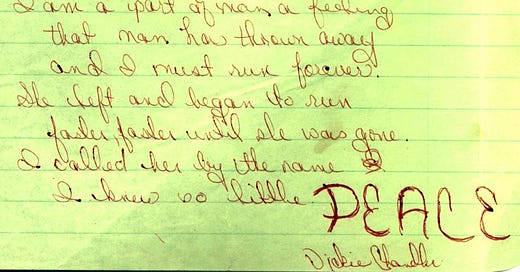 I am a part of man a feeling
that man has thrown away
and I must run forever.
She left and began to run
faster faster until she was gone.
I called her by the name
I knew so little PEACE
Dickie Chandler